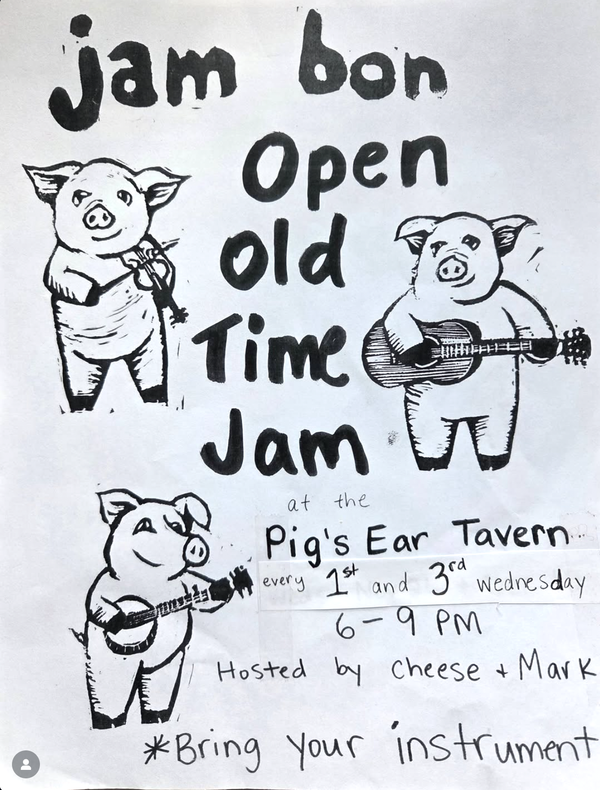 jam bon
Open
Old
Time
Jam
at the
Pig's Ear Tavern
every 1st and 3rd wednesday
6-9 PM
Hosted by cheese + Mark
*Bring your instrument